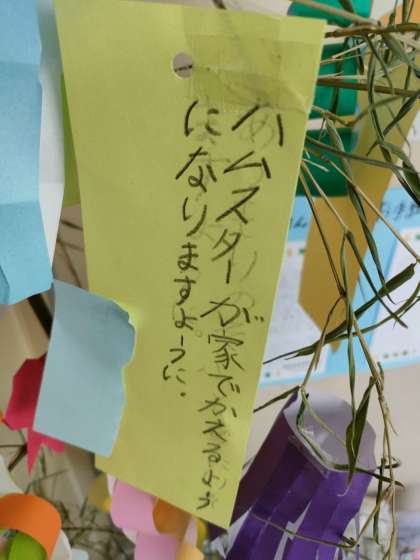 ハムスターが家でかえるよう
になりますように.